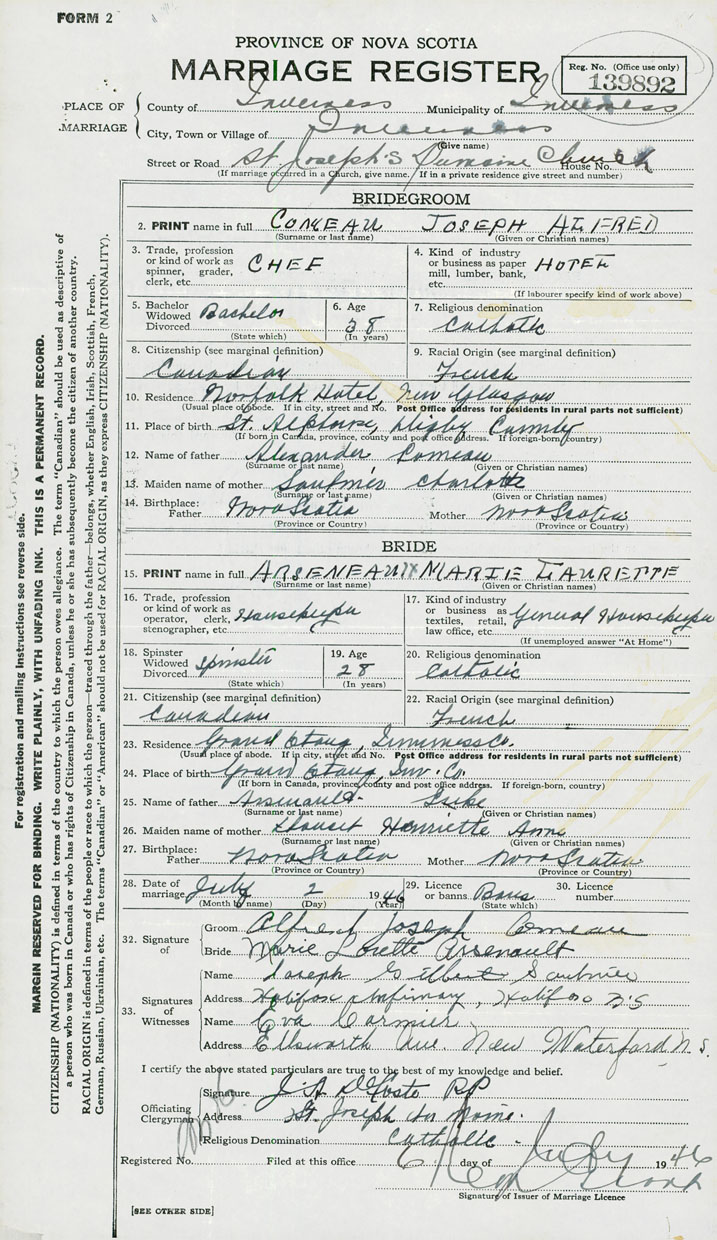 FORM 2
PROVINCE OF NOVA SCOTIA
MARRIAGE REGISTER
Reg. No. (Office use only)
139892
PLACE OF MARRIAGE
County of Inverness Municipality of Inverness
City, Town or Village of Inverness
(Give name)
Street or Road St. Joseph's Church House No.
(If marriage occurred in a Church, give name. If in a private residence give street and number)
BRIDEGROOM
2. PRINT name in full COMEAU JOSEPH ALFRED
(Surname or last name) (Given or Christian names)
3. Trade, profession or kind of work as spinner, grader, clerk, etc. CHEF
4. Kind of industry or business as paper mill, lumber, bank, etc. HOTEL
(If labourer specify kind of work above)
5. Bachelor Widowed Divorced Bachelor
(State which)
6. Age 38
(In years)
7. Religious denomination
Catholic
8. Citizenship (see marginal definition)
Canadian
9. Racial Origin (see marginal definition)
French
10. Residence Norfolk Hotel, New Glasgow
(Usual place of abode. If in city, street and No. Post Office address for residents in rural parts not sufficient)
11. Place of birth St. Alphonse, Digby County
(If born in Canada, province, county and post office address. If foreign-born, country)
12. Name of father Alexander Comeau
(Surname or last name) (Given or Christian names)
13. Maiden name of mother Saulnier Charlotte
(Surname or last name) (Given or Christian names)
14. Birthplace: Father Nova Scotia Mother Nova Scotia
(Province or Country) (Province or Country)
BRIDE
15. PRINT name in full ARSENEAUX MARIE LAURETTE
(Surname or last name) (Given or Christian names)
16. Trade, profession or kind of work as operator, clerk, stenographer, etc. Housekeeper
17. Kind of industry or business as textiles, retail, law office, etc. General Housekeeper
(If unemployed answer "At Home")
18. Spinster Widowed Divorced Spinster
(State which)
19. Age 28
(In years)
20. Religious denomination
Catholic
21. Citizenship (see marginal definition)
Canadian
22. Racial Origin (see marginal definition)
French
23. Residence Grand Etang, Inverness Co.
(Usual place of abode. If in city, street and No. Post Office address for residents in rural parts not sufficient)
24. Place of birth Grand Etang, Inv. Co.
(If born in Canada, province, county and post office address. If foreign-born, country)
25. Name of father Arsenault
(Surname or last name) (Given or Christian names)
26. Maiden name of mother Henriette Anne
(Surname or last name) (Given or Christian names)
27. Birthplace: Father Nova Scotia Mother Nova Scotia
(Province or Country) (Province or Country)
28. Date of marriage July 2 1946
(Month by name) (Day) (Year)
29. Licence or banns Bans
(State which)
30. Licence number
32. Signature of
Groom Alfred Joseph Comeau
Bride Marie Lorette Arsenault
33. Signatures of Witnesses
Name Joseph Gilbert Saulnier
Address Halifax Infirmary, Halifax N.S
Name Eva Cormier
Address Ellsworth Ave. New Waterford N.S.
I certify the above stated particulars are true to the best of my knowledge and belief.
Officiating Clergyman
Signature J. A. DeCoste PP
Address St. Joseph
Religious Denomination Catholic
Registered No. Filed at this office 6 day of July 1946
Signature of Issuer of Marriage Licence
[SEE OTHER SIDE]
For registration and mailing instructions see reverse side.
MARGIN RESERVED FOR BINDING. WRITE PLAINLY, WITH UNFADING INK. THIS IS A PERMANENT RECORD.
CITIZENSHIP (NATIONALITY) is defined in terms of the country to which the person owes allegiance. The term "Canadian" should be used as descriptive of
a person who was born in Canada or who has rights of Citizenship in Canada, unless he or she has subsequently become the citizen of another country.
RACIAL ORIGIN is defined in terms of the people or race to which the person—traced through the father—belongs, whether English, Irish, Scottish, French,
German, Russian, Ukrainian, etc. The terms "Canadian" or "American" should not be used for RACIAL ORIGIN, as they express CITIZENSHIP (NATIONALITY).